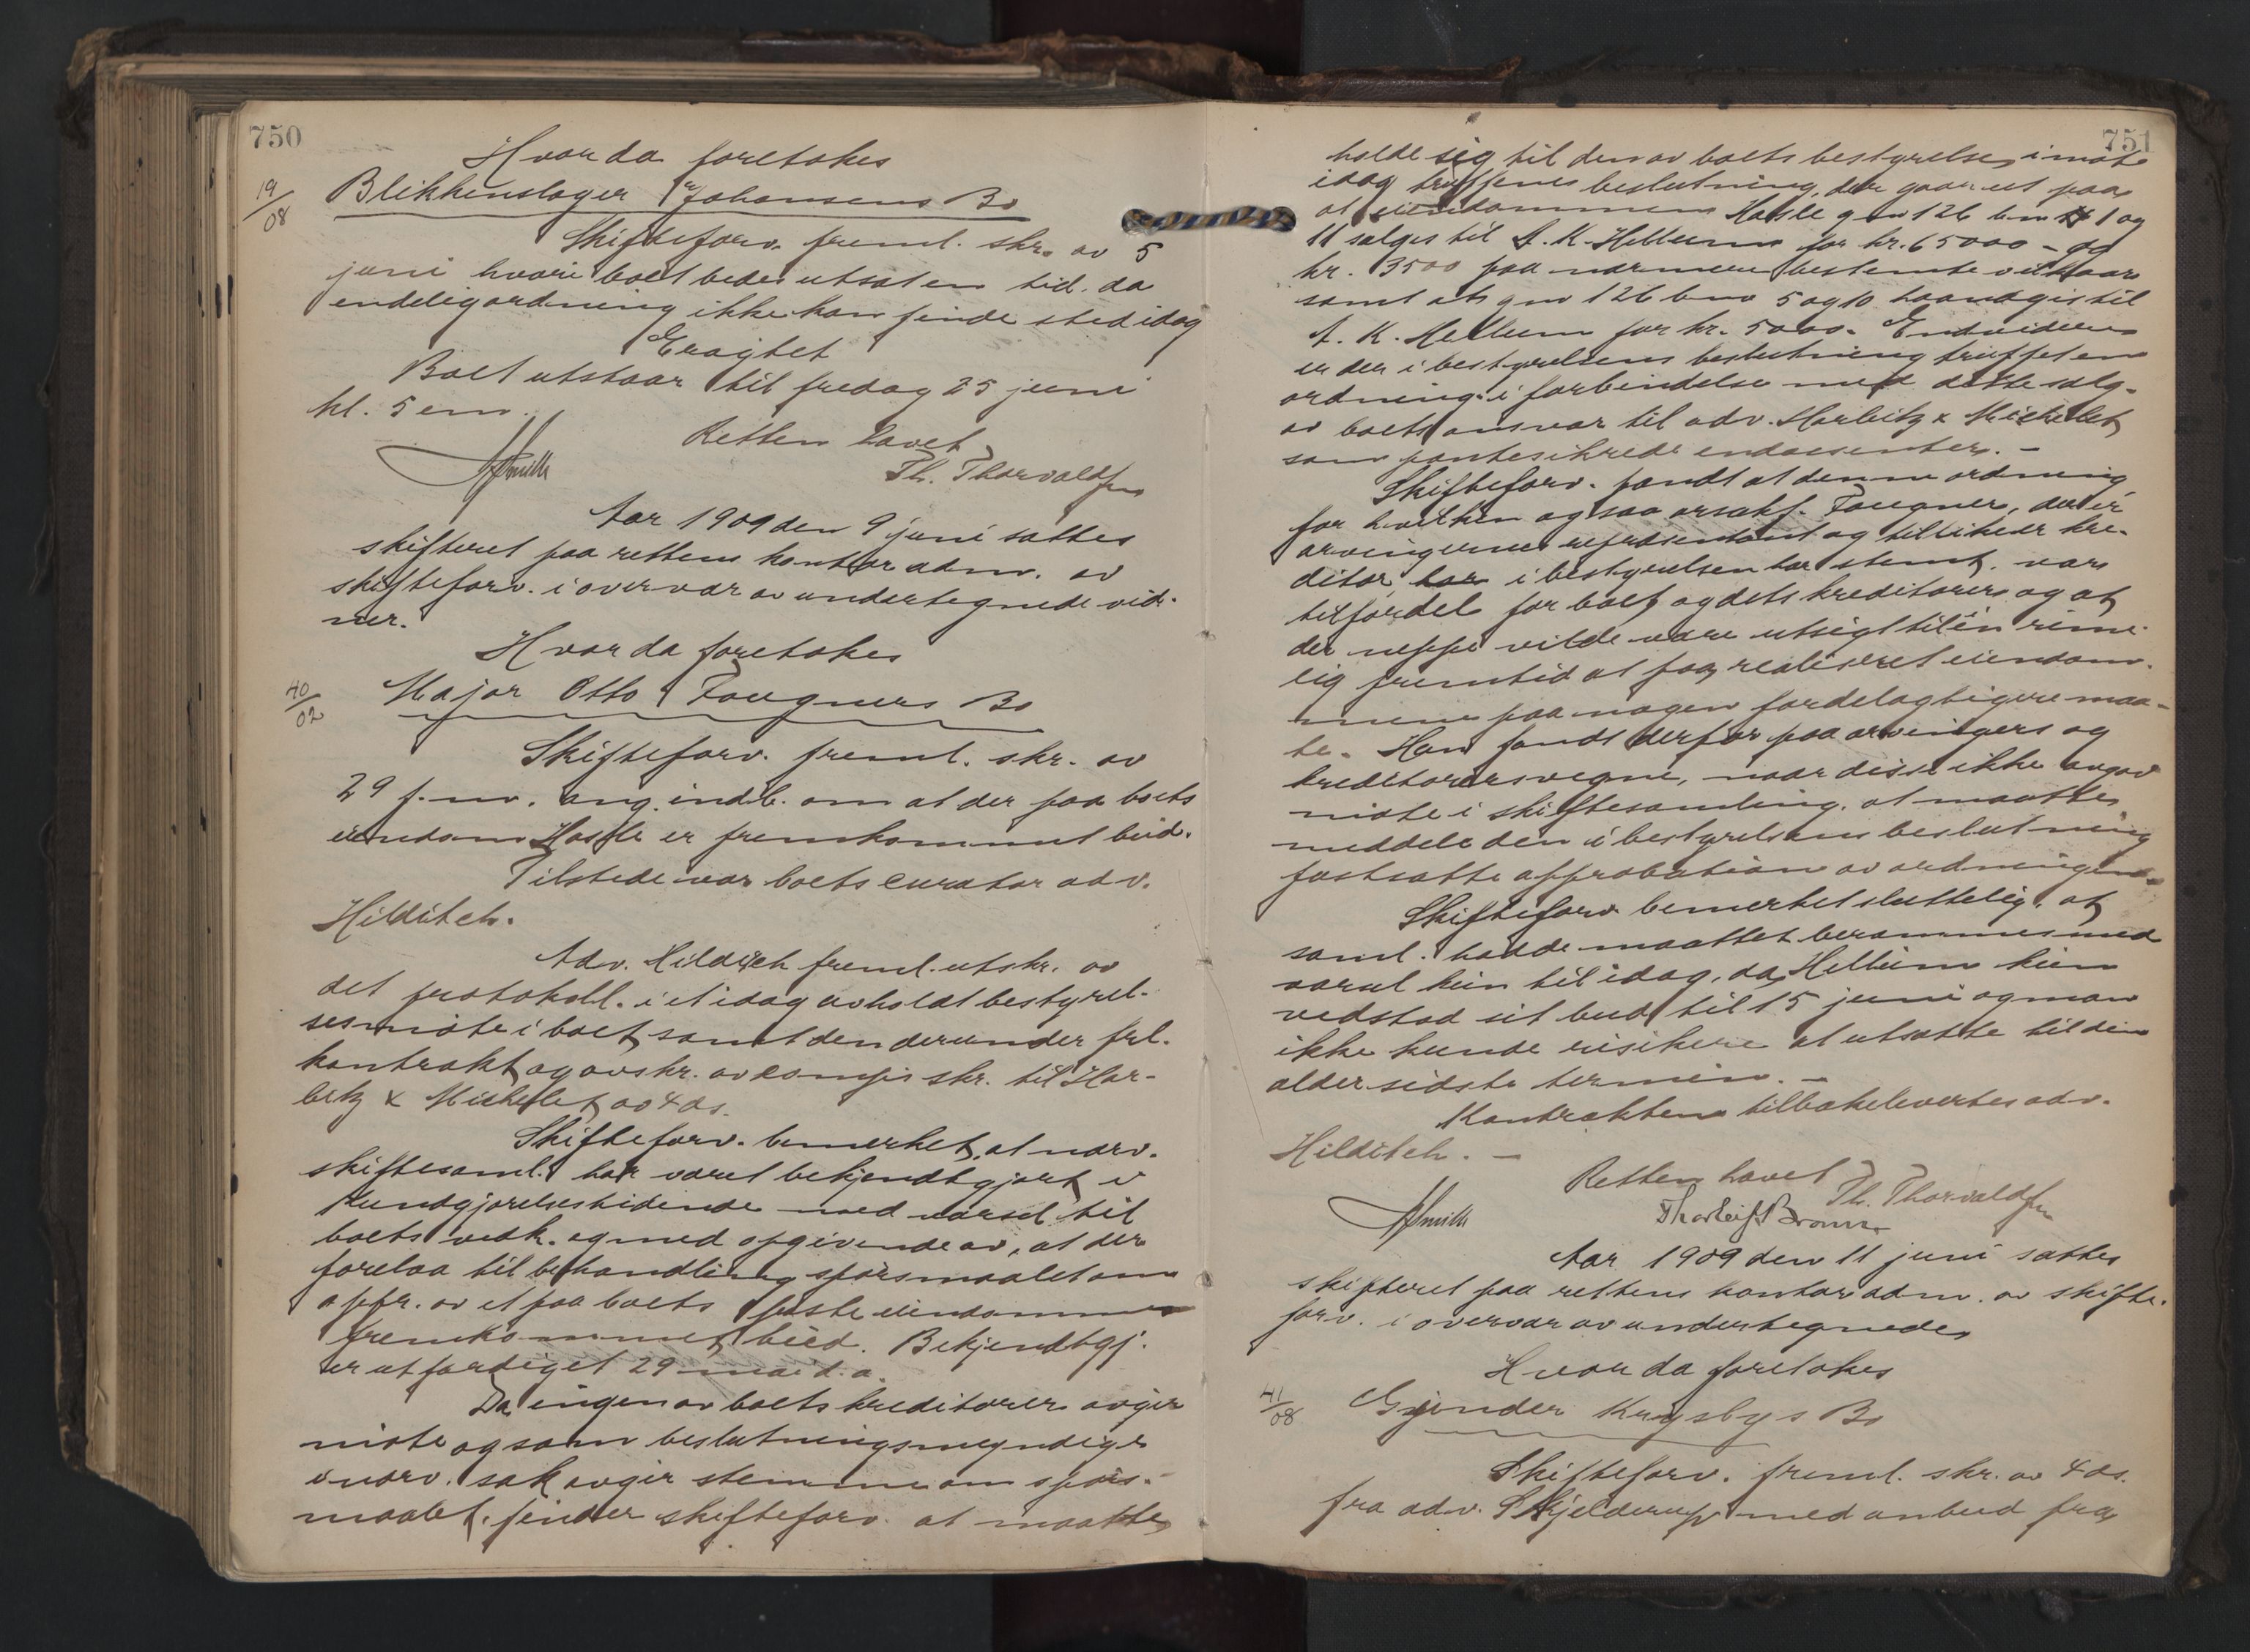 750
Hvorda foretokes
19/08
Blikkenslager Johansens Bo
Skifteforv. freml. skr. av 5
juni hvori boet bedes utsat en tid. da
endelig ordning ikke kan finde sted idag
Eragtet
Boet utstaar til fredag 25 juni
kl. 5 em.
Retten hævet
Th. Thorvaldsen
Aar 1909 den 9 juni sattes
skifteret paa rettens kontor adm. av
skifteforv. i overvær av undertegnede vid-
ner.
Hvorda foretokes
40/02
Major Otto Fougners Bo
Skifteforv. freml. skr. av
29 f.m. ang. indb. om at der paa boets
eiendom Hasle er fremkommet bud.
Tilstede var boets curator adv.
Hilditch.
Adv. Hilditch freml. utskr. av
det protokoll. i et idag avholdt bestyrel-
sesmøte i boet, samt den derunder frl.
kontrakt og avskr. av skr. til Har-
bitz & Michelet av 4 ds.
Skifteforv. bemerket, at nærv.
skiftesaml. har været bekjendtgjort i
Kundgjørelsestidende med varsel til
boets vedk. og med opgivende av, at der
forelaa til behandling spørsmaalet om
appr. av et paa boets faste eiendommer
fremkommet bud. Bekjendtgj.
er utfærdiget 29 mai d.a.
Da ingen av boets kreditorer avgir
møte og som beslutningsmyndige
i nærv. sak avgir stemme om spørs-
maalet, finder skifteforv. at maatte
751
holde sig til den av boets bestyrelse i møte
idag trufne beslutning, der gaar ut paa
at eiendommen Hasle gno 126 bno 1 og
11 sælges til A. K. Hellum for kr. 65000 - og
kr. 3500 paa nærmere bestemte vilkaar
samt at gno 126 bno 5 og 10 haandgis til
A. K. Hellum for kr. 5000. Endvidere
er der i bestyrelsens beslutning truffet en
ordning i forbindelse med dette salg
av boets ansvar til adv. Harbitz & Michelet
som pantesikrede endossenter. -
Skifteforv. fandt at denne ordning
for hvilken ogsaa Fougner, der er
arvingernes repræsentant og tillike er kre-
ditor, i bestyrelsen har stemt, var
til fordel for boet og dets kreditorer og at
der neppe vilde være utsigt til i en rime-
lig fremtid at faa realiseret eiendom-
mene paa nogen fordelagtigere maa-
te. Han fandt derfor paa arvingers og
kreditorers vegne, naar disse ikke avgav
møte i skiftesamling, at maatte
meddele den i bestyrelsens beslutning
fastsatte approbation av ordningen.
Skifteforv. bemerket sluttelig, at
saml. hadde maattet berammes med
varsel kun til idag, da Hellum kun
vedstod sit bud til 15 juni og man
ikke kunde risikere at utsætte til den
aldersidste termin. -
Kontrakten tilbakelevertes adv.
Hilditch. -
Retten hævet
Th. Thorvaldsen
Thorleif Bronn
Aar 1909 den 11 juni sattes
skifteret paa rettens kontor adm. av skifte-
forv. i overvær av undertegnede
Hvorda foretokes
41/08
Gjonder Krygsbys Bo
Skifteforv. freml. skr. av 4 ds.
fra adv. Skjelderup med anbud fra